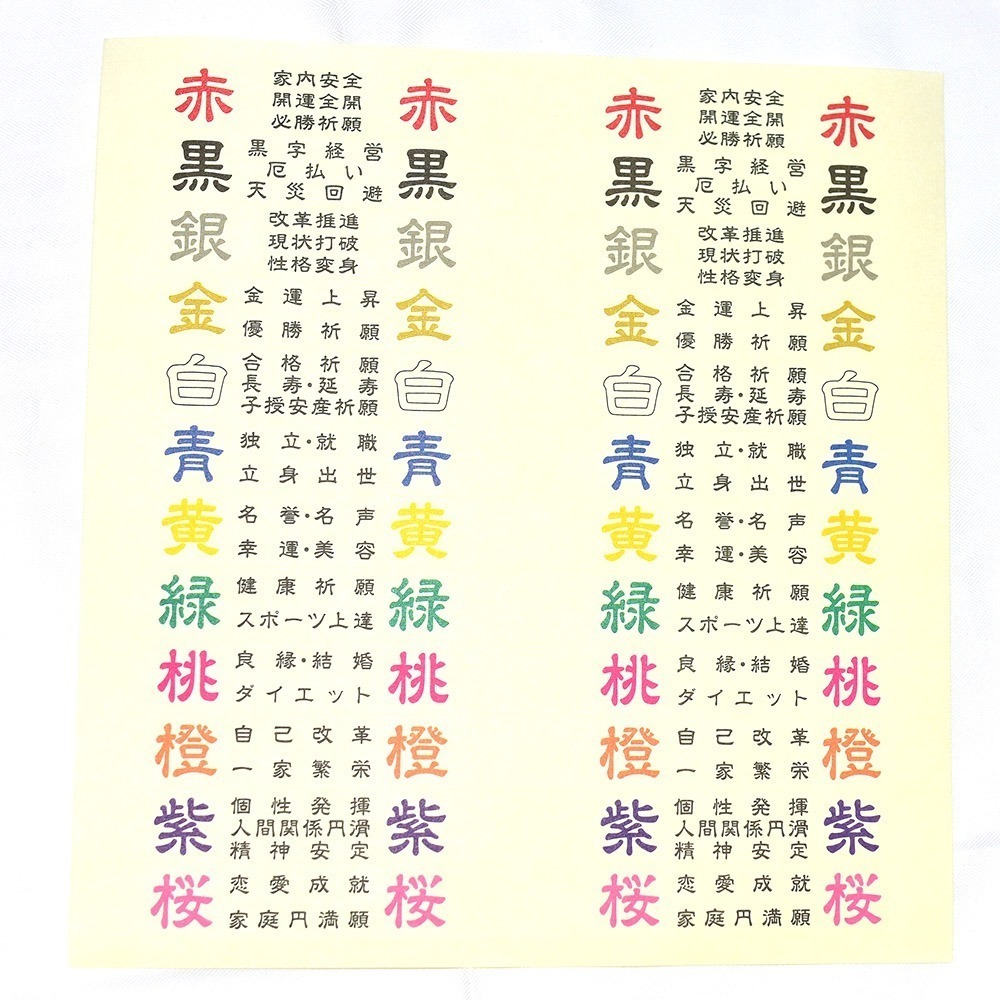 赤
家内安全
開運全開
必勝祈願
赤
黒
黒字経営
厄払い
天災回避
黒
銀
改革推進
現状打破
性格変身
銀
金
金運上昇
優勝祈願
金
白
合格祈願
長寿・延寿
子授安産祈願
白
青
独立・就職
立身出世
青
黄
名誉・名声
幸運・美容
黄
緑
健康祈願
スポーツ上達
緑
桃
良縁・結婚
ダイエット
桃
橙
自己改革
一家繁栄
橙
紫
個性発揮
人間関係円滑
精神安定
紫
桜
恋愛成就
家庭円満願
桜
赤
家内安全
開運全開
必勝祈願
赤
黒
黒字経営
厄払い
天災回避
黒
銀
改革推進
現状打破
性格変身
銀
金
金運上昇
優勝祈願
金
白
合格祈願
長寿・延寿
子授安産祈願
白
青
独立・就職
立身出世
青
黄
名誉・名声
幸運・美容
黄
緑
健康祈願
スポーツ上達
緑
桃
良縁・結婚
ダイエット
桃
橙
自己改革
一家繁栄
橙
紫
個性発揮
人間関係円滑
精神安定
紫
桜
恋愛成就
家庭円満願
桜